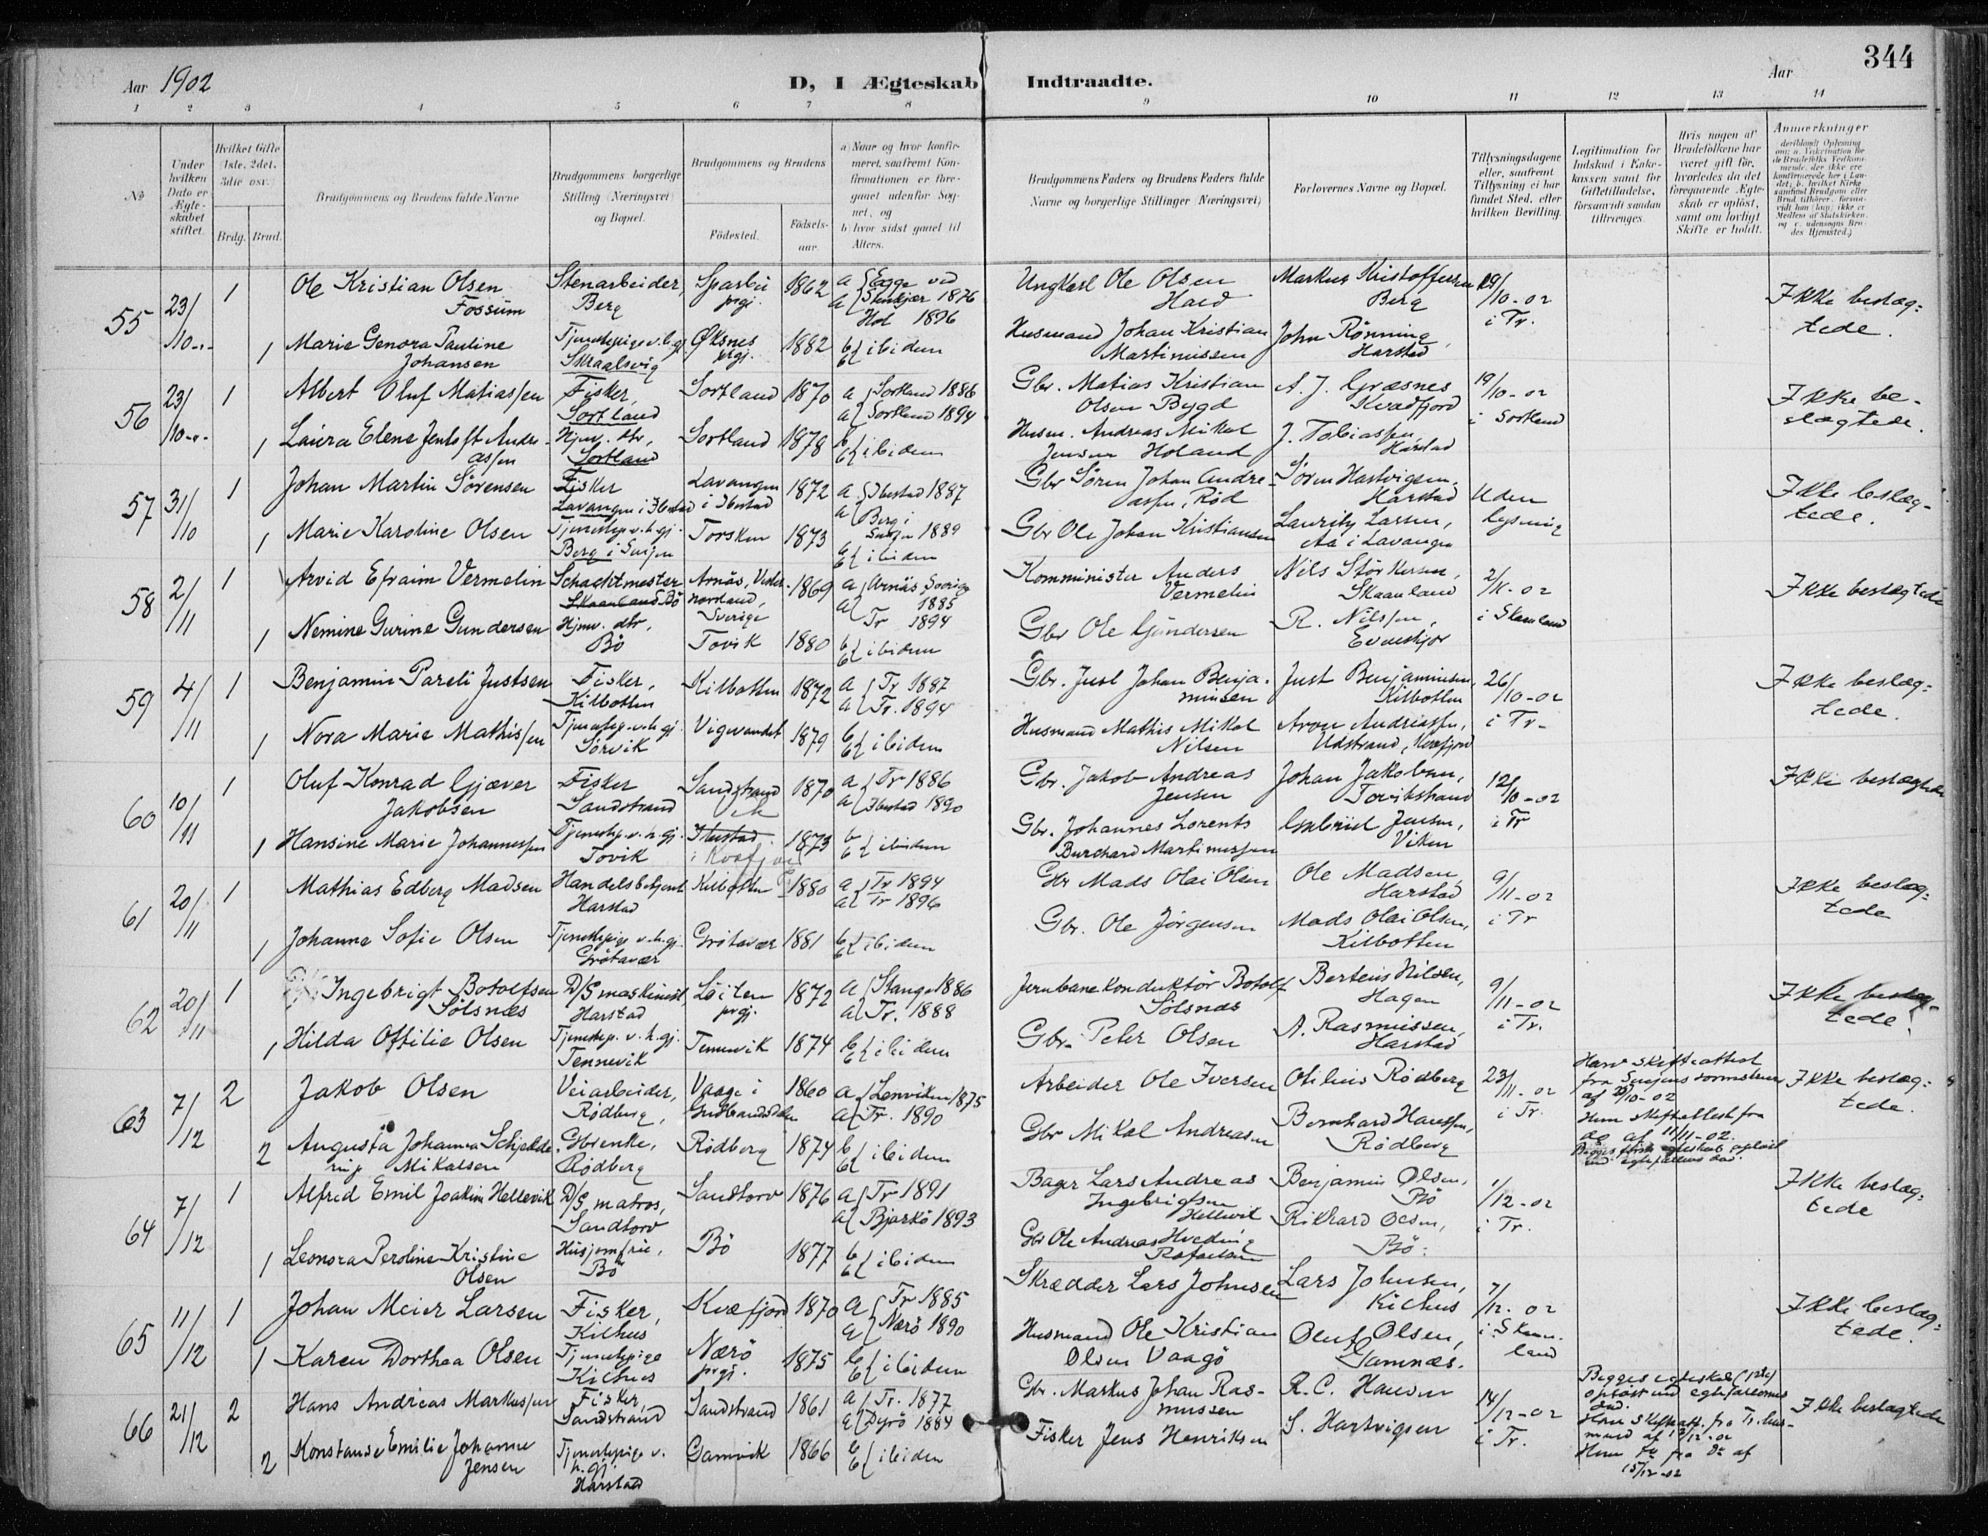 344
Aar 1902
D, I Ægteskab Indtraadte.
Aar
1 2 3 4 5 6 7 8 9 10 11 12 13 14
No
Under hvilken Dato er Ægteskabet stiftet.
Hvilket Gifte (1ste, 2det, 3die osv.)
Brdg. Brud.
Brudgommens og Brudens fulde Navne
Brudgommens borgerlige Stilling (Næringsvei) og Bopæl.
Brudgommens og Brudens
Fødested.
Fødselsaar.
a) Naar og hvor konfirmeret, saafremt Konfirmationen er foregaaet udenfor Sognet, og
b) hvor sidst gaaet til Alters.
Brudgommens Faders og Brudens Faders fulde Navne og borgerlige Stillinger (Næringsvei)
Forlovernes Navne og Bopæl.
Tillysningsdagene eller, saafremt Tillysning ei har fundet Sted, efter hvilken Bevilling.
Legitimation for Indskud i Enkekassen samt for Giftetilladelse, forsaavidt saadan tiltrænges.
Hvis nogen af Brudefolkene har været gift før, hvorledes da det foregaaende Ægteskab er opløst, samt om lovligt Skifte er holdt.
Anmerkninger
55 23/10-"- 1 Ole Kristian Olsen Fossum Stenarbeider, Berg Sparbu prgj. 1862 a Egge ved Stenkjær 1876 a Hol 1896 Ungkarl Ole Olsen Haed Markus Kristoffersen Berg 19/10-02 i Tr. Ikke beslægtede.
1 Marie Genora Pauline Johansen Tjenestepige v. h. gj. Skraalsvig Øksnes prgj. 1882 b ibidem Husmand Johan Kristian Martinussen John Rønning, Harstad
56 23/10-"- 1 Albert Oluf Matiassen Fisker, Sortland Sortland 1870 a Sortland 1886 a Sortland 1894 Gbr. Matias Kristian Olsen Bygd A. J. Græsnes Kvædfjord 19/10-02 i Sortland Ikke beslægtede.
1 Laura Elene Jentoft Andreassen Hjmv. dtr., Sortland Sortland 1878 b ibidem Husm. Andreas Mikal Jensen Holand J. Tobiassen, Harstad
57 31/10 1 Johan Martin Sørensen Fisker Lavangen i Ibestad Lavangen i Ibestad 1872 a Ibestad 1887 a Berg i Senjen 1889 Gbr Søren Johan Andreassen, Rød Søren Hartvigsen, Harstad Uden lysning Ikke beslægtede.
1 Marie Karoline Olsen Tjenestep. v. h. gj. Berg i Senjen Torsken 1873 b ibidem Gbr Ole Johan Kristiansen Lauritz Larsen, Aa i Lavangen
58 2/11 1 Arvid Efraim Vermelin Schachtmester Skaanland Bø Arnäs, Vesternorrland, Sverige 1869 a Arnäs Sverige 1885 a Tr 1894 Komminister Anders Vermelin Nils Størkersen, Skaanland 2/11-02 i Skaanland Ikke beslægtede
1 Nemine Gurine Gundersen Hjmv. dtr, Bø Tovik 1880 b ibidem Gbr Ole Gundersen R. Nilssen, Evenskjer
59 4/11 1 Benjamin Pareli Justsen Fisker, Kilbotten Kilbotten 1872 a Tr 1887 a Tr. 1894 Gbr. Just Johan Benjaminsen Just Benjaminsen, Kilbotten 26/10-02 i Tr- Ikke beslægtede.
1 Nora Marie Mathissen Tjenestep. v. h. gj. Sørvik Vigevandet 1879 b ibidem Husmand Mathis Mikal Nilsen Aron Andreassen, Udstrand, Kvæfjord
60 10/11 1 Oluf Konrad Gjæver Jakobsen Fisker Sandstrand Sandstrand Vik 1870 a Tr 1886 a Ibestad 1890 Gbr. Jakob Andreas Jensen Johan Jakobsen, Tovikstrand 12/10-02 i Tr Ikke beslægtede
1 Hansine Marie Johannessen Tjenestep. v. h. gj. Tovik Ibestad i Kvæfjord 1873 b ibidem Gbr. Johannes Lorents Burchard Martinussen Gabriel Jensen, Viken
61 20/11 1 Mathias Edberg Madsen Handelsbetjent Harstad Kilbotten 1880 a Tr 1894 a Tr 1896 Gbr Mads Olai Olsen Ole Madsen Harstad 9/11-02 i Tr Ikke beslægtede
1 Johanna Sofie Olsen Tjenestepige v. h. gj. Grøtavær Grøtavær 1881 b ibidem Gbr. Ole Jørgensen Mads Olai Olsen, Kilbotten
62 20/11 1 Ingebrigt Botolfsen Solsnæs D/S maskinist Harstad Løiten prgj. 1872 a Stange 1886 a Tr. 1888 Jernbanekonduktør Botolf Solsnæs Berteus Nilsen, Hagen 9/11-02 i Tr. Ikke beslægtede.
1 Hilda Ottilie Olsen Tjenestep. v. h. gj. Tennevik Tennevik 1874 b ibidem Gbr. Peter Olsen A. Rasmussen, Harstad
63 7/12 2 Jakob Olsen Veiarbeider, Rødberg, Vaage i Gudbrandsdalen 1860 a Lenviken 1875 a Tr. 1890 Arbeider Ole Iversen Otilius Rødberg 23/11-02 i Tr. Ikke beslægtede.
Han skifteattest fra Senjens sorenskriver af 28/10-02 Hun skifteattest fra do af 11/11-02. Begges første egteskab opløst ved egtefællens død.
2 Augusta Johanna Schjelderup Mikalsen Gbrenke, Rødberg Rødberg 1874 b ibidem Gbr Mikal Andreasen Bernhard Hanssen, Rødberg
64 7/12 1 Alfred Emil Joakim Hellevik D/S matros, Sandtorv Sandtorv 1876 a Tr 1891 a Bjarkø 1893 Bager Lars Andreas Ingebrigtsen Hellevik Benjamin Olsen, Bø 1/12-02 i Tr. Ikke beslægtede
1 Leonora Peroline Kristine Olsen Husjomfru, Bø Bø 1877 b ibidem Gbr Ole Andreas Hveding Rafaelsen Rikhard Olsen, Bø.
65 11/12 1 Johan Meier Larsen Fisker, Kilhus Kvæfjord 1870 a Tr 1885 a Nærø 1890 Skrædder Lars Johnsen Lars Johnsen, Kilhus 7/12-02 i Skaanland Ikke beslægtede.
1 Karen Dorthea Olsen Tjenestepige Kilhus Nærø prgj. 1875 b ibidem Husmand Ole Kristian Olsen Vaagø Oluf Olsen, Gamnæs.
66 21/12 2 Hans Andreas Markussen Fisker, Sandstrand Sandstrand 1861 a Tr. 1877 a Dyrø 1884 Gbr. Markus Johan Rasmussen R. C. Hansen 14/12-02 i Tr. Ikke beslægtede
Begges egteskab (1ste) opløst ved egtefællernes død. Han skifteatt. fra Tr. lensmand af 13/12-02 Hun do fra do af 15/12-02
2 Konstanse Emilie Johanne Jensen Tjenestepige v. h. gj. Harstad Gamvik 1866 b ibidem Fisker Jens Henriksen S. Hartvigsen